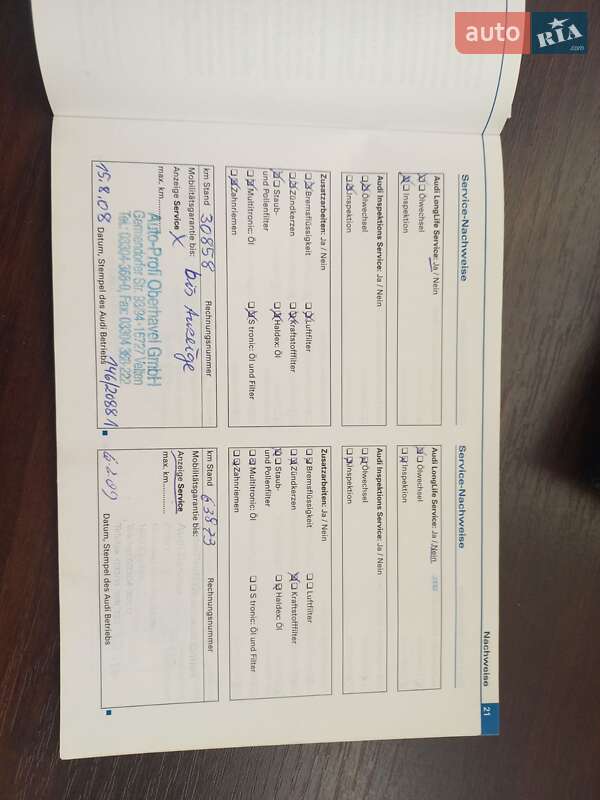 auto RIA.com
Nachweise
21
Service-Nachweise
Audi LongLife Service: Ja / Nein
Ölwechsel
Inspektion
Audi Inspektions Service: Ja / Nein
Ölwechsel
Inspektion
Zusatzarbeiten: Ja / Nein
Bremsflüssigkeit
Luftfilter
Zündkerzen
Kraftstofffilter
Staub-
und Pollenfilter
Haldex: Öl
Multitronic: Öl
S tronic: Öl und Filter
Zahnriemen
km Stand 30858
Rechnungsnummer
Mobilitätsgarantie bis: bis Anzeige
Anzeige Service X
max. km
146/20881
Auto-Profi Oberhavel GmbH
Germendorfer Str. 93/94 · 16727 Velten
15.8.08
Datum, Stempel des Audi Betriebs
Service-Nachweise
Audi LongLife Service: Ja / Nein
Ölwechsel
Inspektion
Audi Inspektions Service: Ja / Nein
Ölwechsel
Inspektion
Zusatzarbeiten: Ja / Nein
Bremsflüssigkeit
Luftfilter
Zündkerzen
Kraftstofffilter
Staub-
und Pollenfilter
Haldex: Öl
Multitronic: Öl
S tronic: Öl und Filter
Zahnriemen
km Stand 63873
Rechnungsnummer
Mobilitätsgarantie bis:
Anzeige Service
max. km
Datum, Stempel des Audi Betriebs